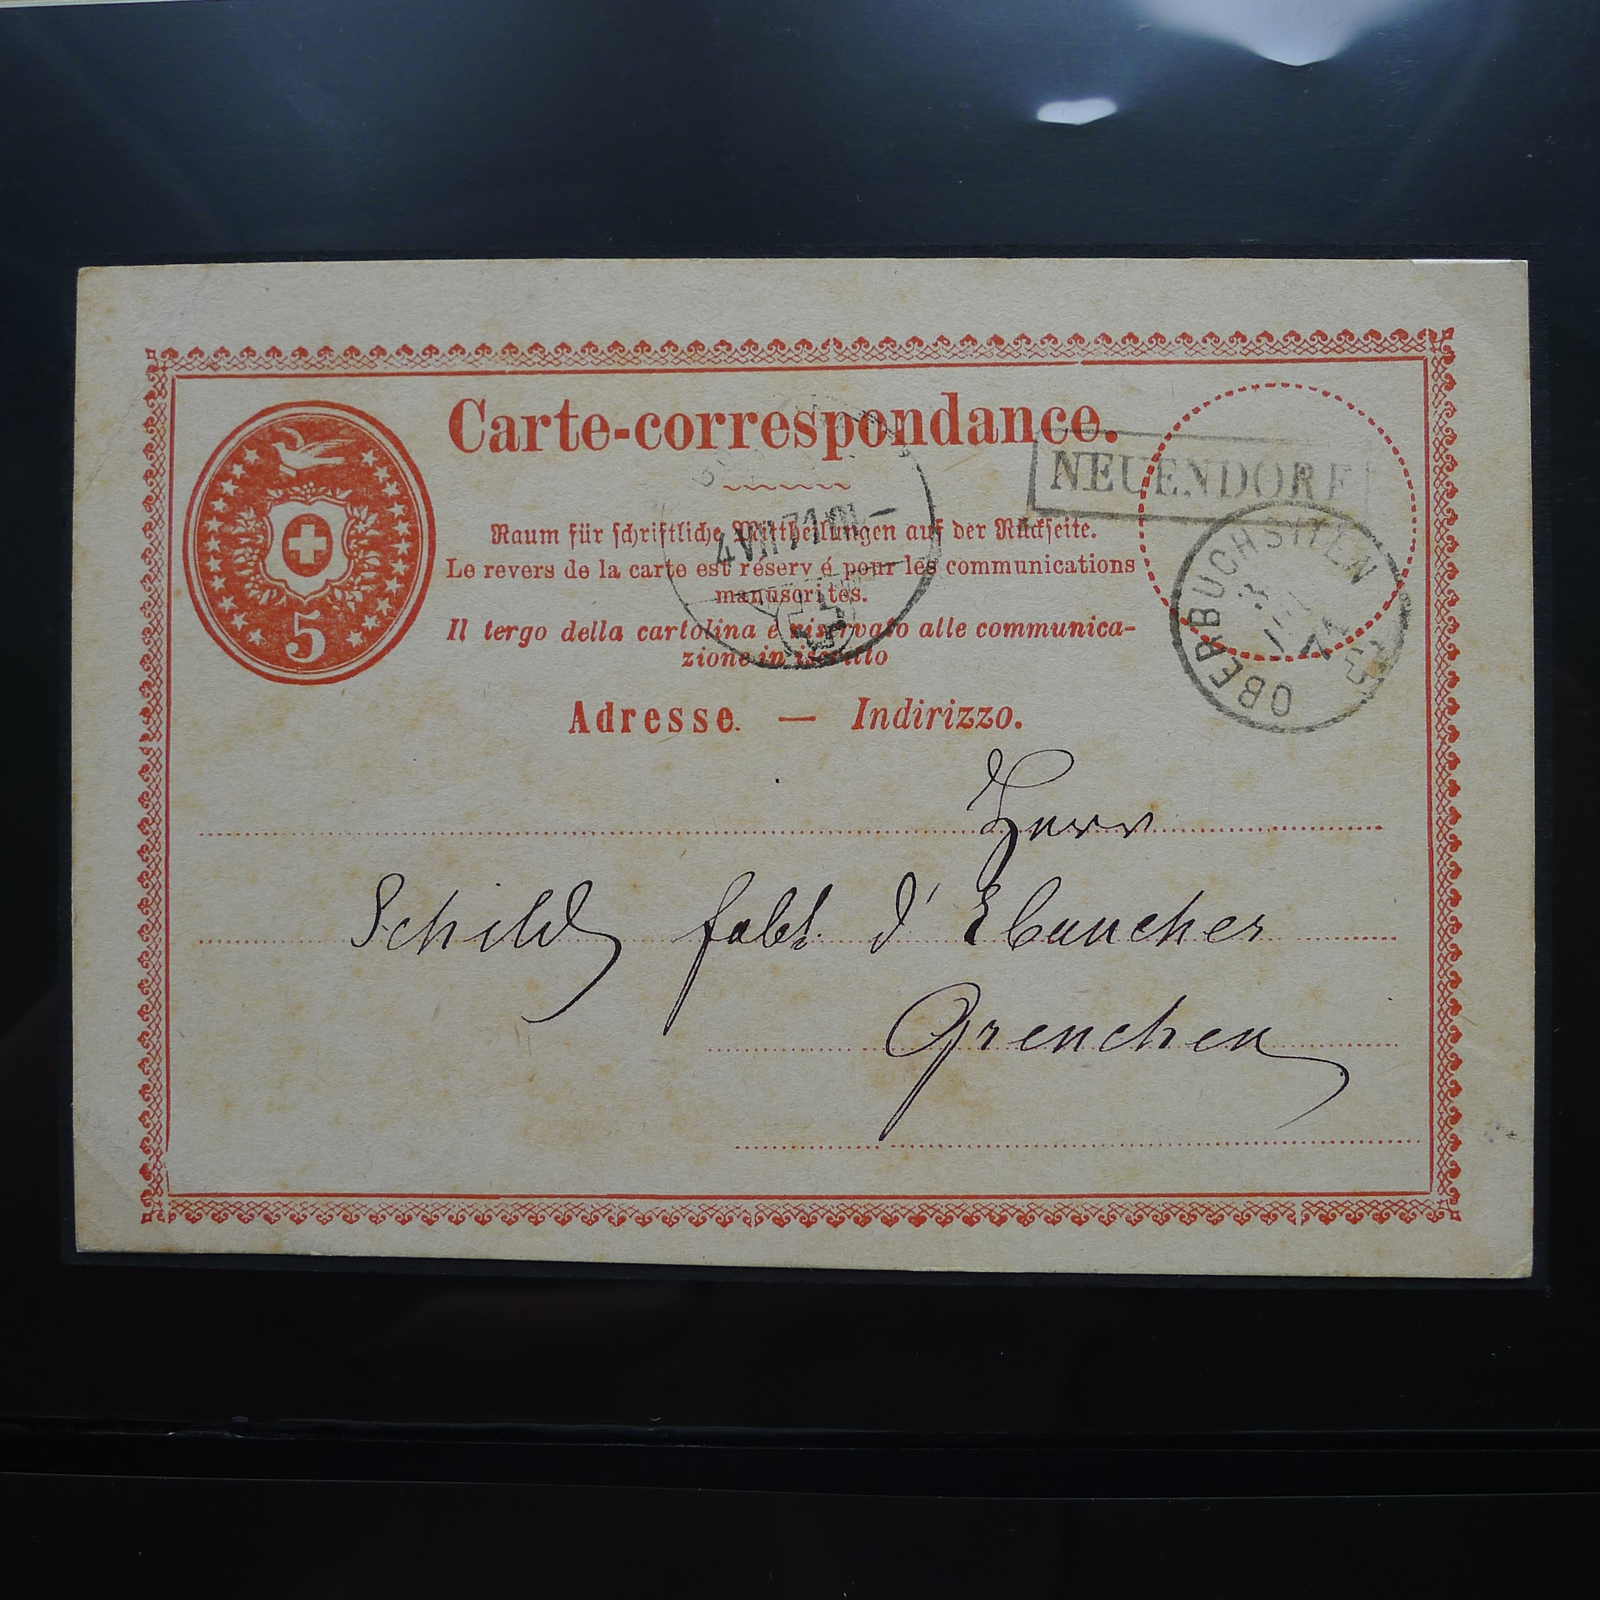 Carte-correspondance.
NEUENDORF
5
4 VII 71
Raum für schriftliche Mittheilungen auf der Rückseite.
Le revers de la carte est réserv é pour les communications
manuscrites.
Il tergo della cartolina è riservato alle communica-
zione in iscritto
OBERBUCHSITEN
3
71
Adresse. — Indirizzo.
Herr
Schild fabt. d' Ebauches
Grenchen